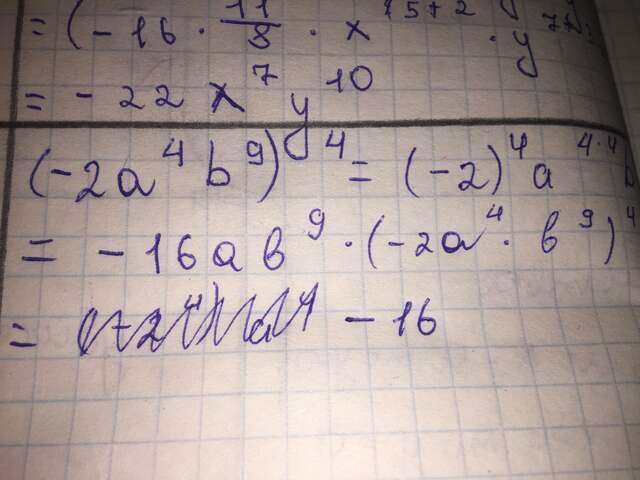 = (-16 · 11/8 · x^{5+2} · y
= -22x^7 y^{10}
(-2a^4 b^9)^4 = (-2)^4 a^{4·4} b
= -16ab^9 · (-2a^4 · b^9)^4
= -16